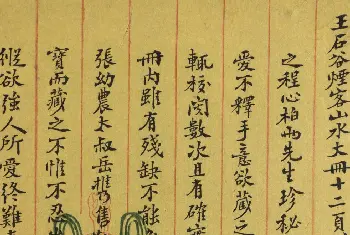 王石谷煙客山水大冊十二頁
之程心柏兩先生珍秘
愛不釋手意欲藏之
輒校閱數次且有確
冊內雖有殘缺不能
張幼農太叔岳攜售
寶而藏之不惟不忍
縱欲強人所愛終難